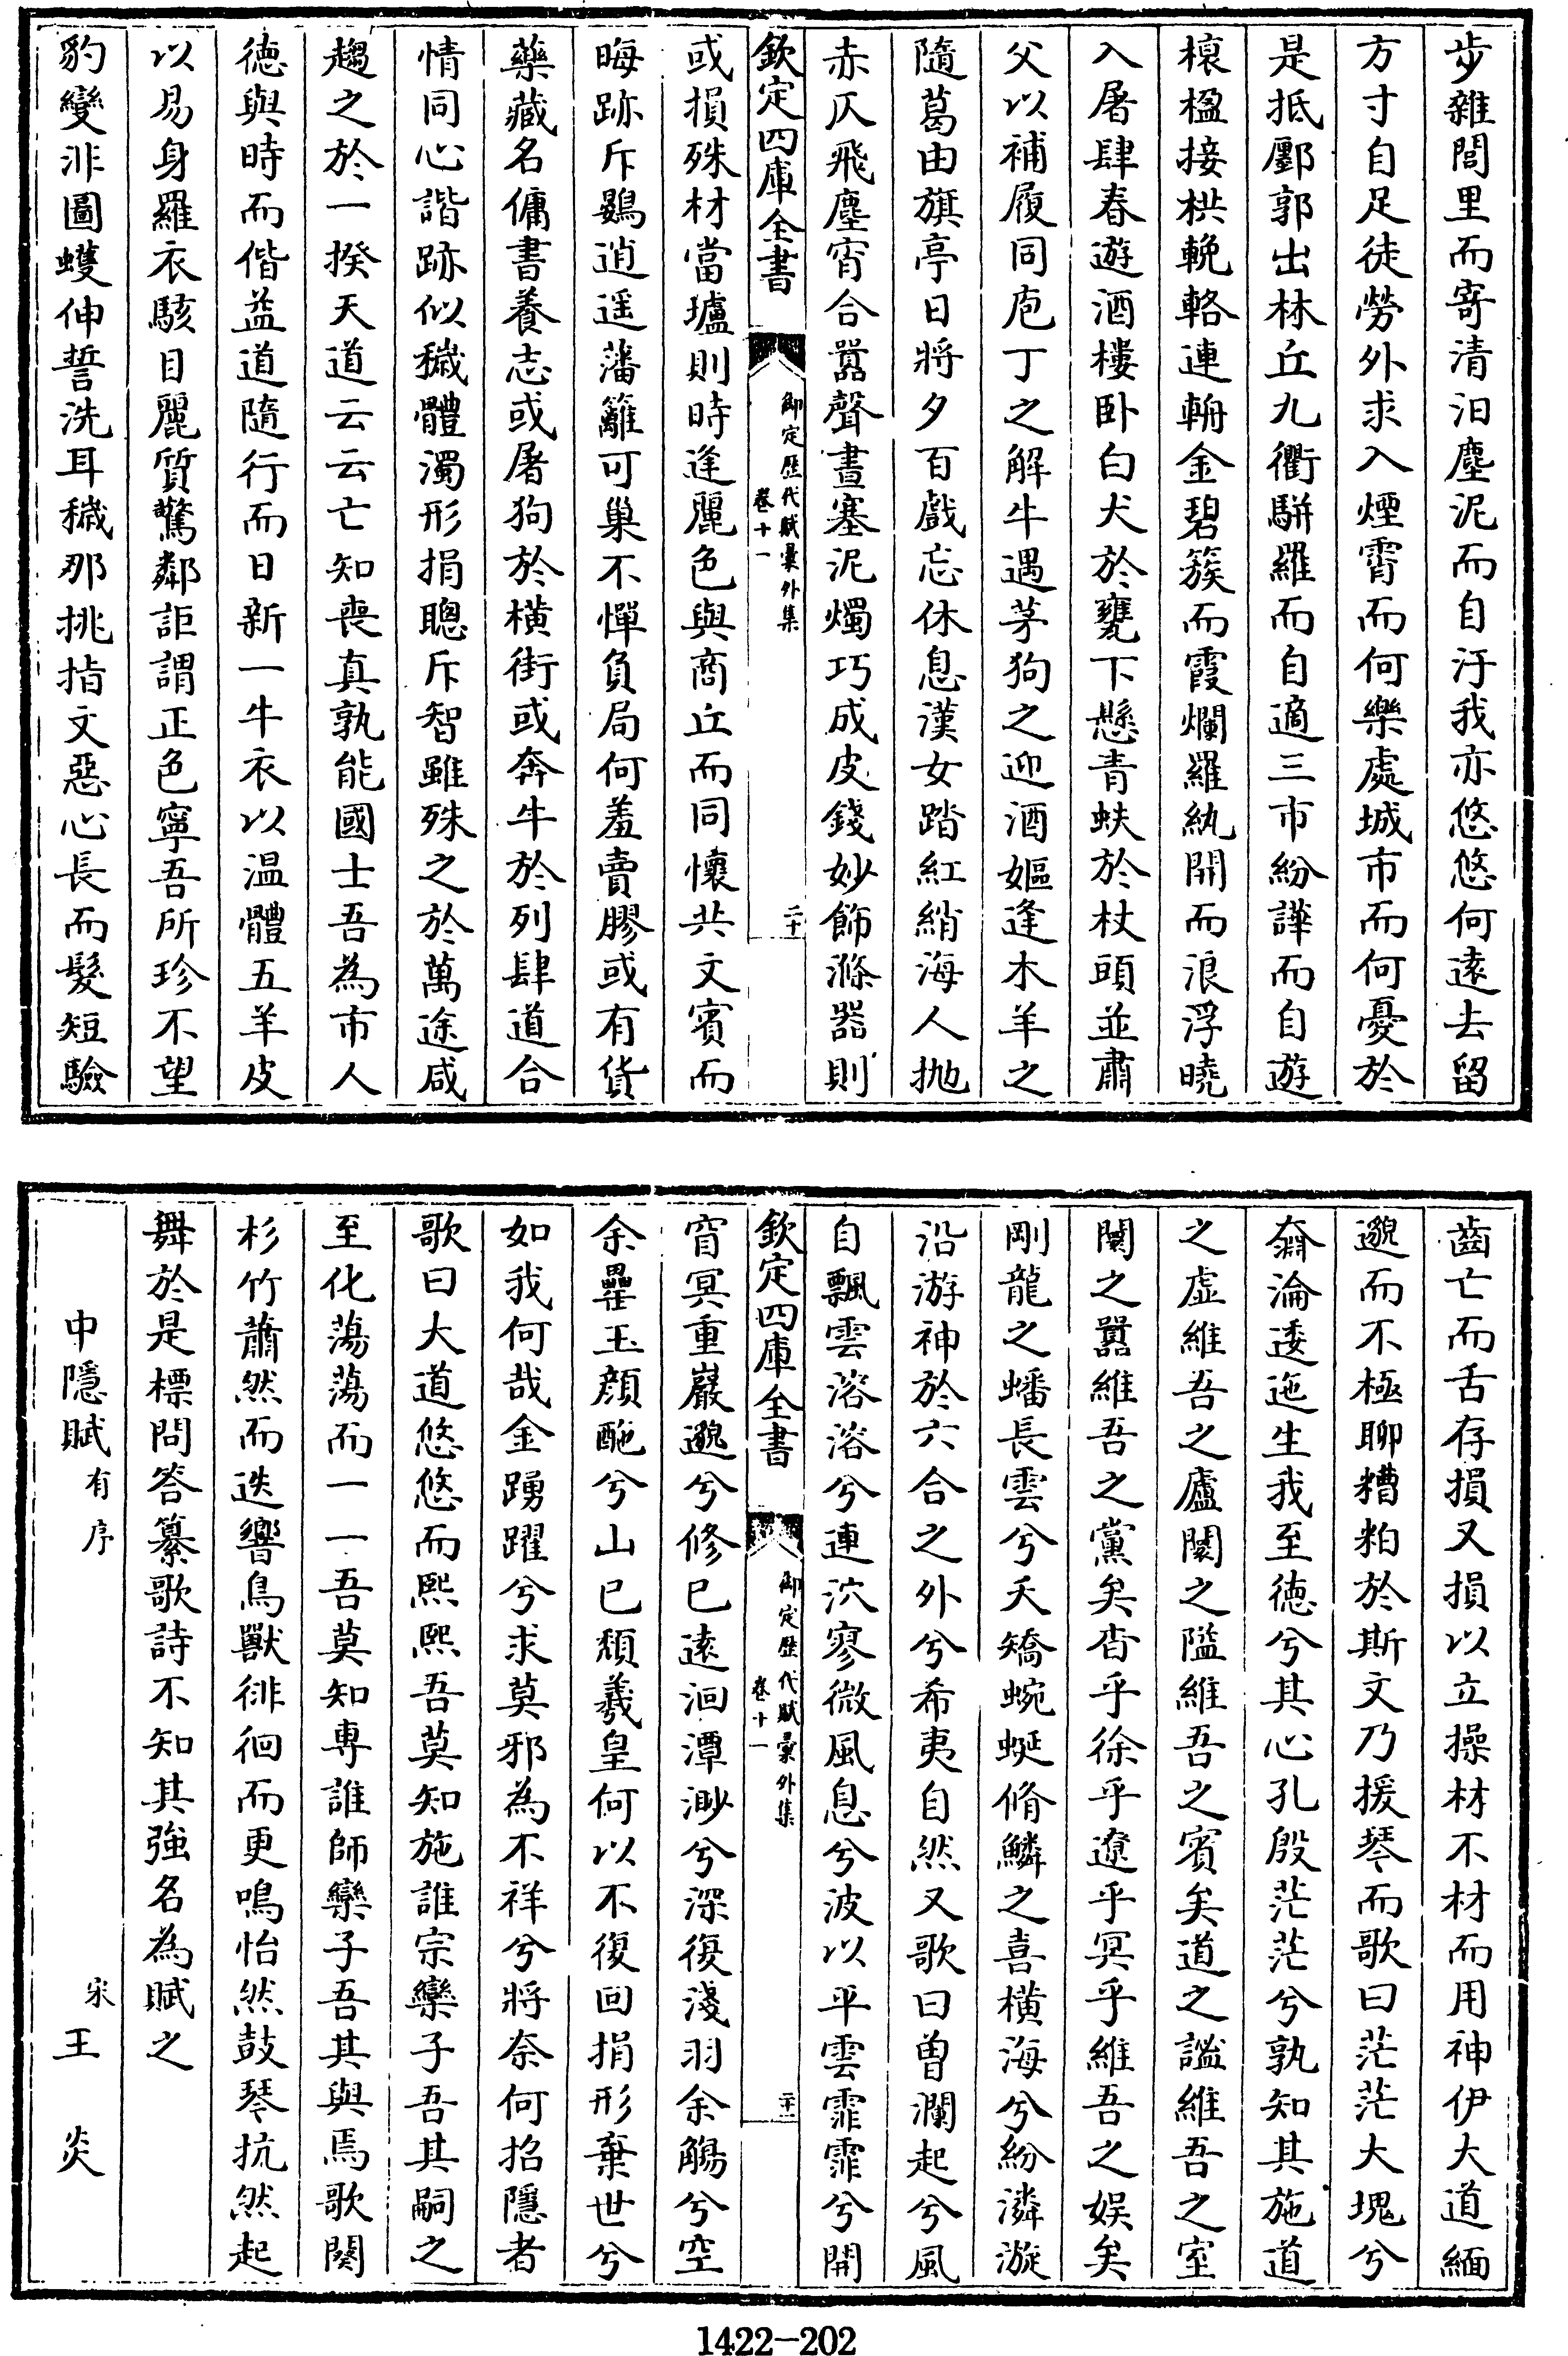 步雜閭里而寄清汨塵泥而自汙我亦悠悠何遠去留
方寸自足徒勞外求入煙霄而何樂處城市而何憂於
是抵酈郭出林丘九衢駢羅而自適三市紛譁而自遊
榱楹接栱輓輅連輈金碧簇而霞爛羅紈開而浪浮曉
入屠肆春遊酒樓卧白犬於甕下懸青蚨於杖頭並肅
父以補履同庖丁之解牛遇芧狗之迎酒嫗逢木羊之
隨葛由旗亭日將夕百戲忘休息漢女踏紅綃海人抛
赤仄飛塵宵合囂聲晝塞泥燭巧成皮錢妙飾滌器則
欽定四庫全書
御定歴代賦彙外集
卷十一
二十
或損殊材當壚則時逢麗色與商丘而同懷共文賓而
晦跡斥鷃逍遥藩籬可巢不憚負局何羞賣膠或有貨
藥藏名傭書養志或屠狗於橫街或奔牛於列肆道合
情同心諧跡似穢體濁形捐聰斥智雖殊之於萬途咸
趨之於一揆天道云云亡知喪真孰能國士吾為市人
德與時而偕益道隨行而日新一牛衣以温體五羊皮
以易身羅衣駭目麗質驚鄰詎謂正色寧吾所珍不望
豹變沘圖蠖伸誓洗耳穢那挑指文惡心長而髮短驗
齒亡而舌存損又損以立操材不材而用神伊大道緬
邈而不極聊糟粕於斯文乃援琴而歌曰茫茫大塊兮
奫淪逶迤生我至德兮其心孔殷茫茫兮孰知其施道
之虚維吾之廬闤之隘維吾之賓矣道之謐維吾之室
闤之囂維吾之黨矣杳乎徐乎遼乎冥乎維吾之娱矣
剛龍之蟠長雲兮夭矯蜿蜒脩鱗之喜橫海兮紛潾漩
沿游神於六合之外兮希夷自然又歌曰曽瀾起兮風
自飄雲溶溶兮連泬寥微風息兮波以平雲霏霏兮開
欽定四庫全書
御定歴代賦彙外集
卷十一
二十一
窅冥重巖邈兮修已遠洄潭渺兮深復淺羽余觴兮空
余罍玉顔酡兮山已頽羲皇何以不復回捐形棄世兮
如我何哉金踴躍兮求莫邪為不祥兮將奈何招隱者
歌曰大道悠悠而熙熙吾莫知施誰宗欒子吾其嗣之
至化蕩蕩而一一吾莫知專誰師欒子吾其與焉歌闋
杉竹蕭然而迭響鳥獸徘徊而更鳴怡然鼓琴抗然起
舞於是標問答纂歌詩不知其強名為賦之
中隱賦有序
宋王炎
1422-202